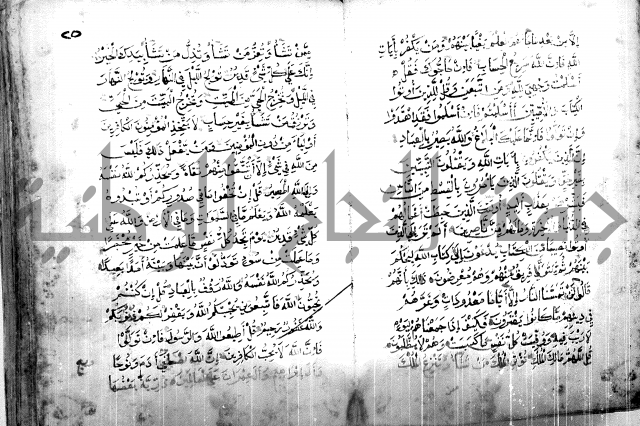 إلا من بعد ما جاءهم العلم بغيا بينهم ومن يكفر بآيات
الله فإن الله سريع الحساب فإن حاجوك فقل
أسلمت وجهي لله ومن اتبعن وقل للذين أوتوا
الكتاب والأميين أأسلمتم فإن أسلموا فقد اهتدوا
وإن تولوا فإنما عليك البلاغ والله بصير بالعباد
إن الذين يكفرون بآيات الله ويقتلون النبيين
بغير حق ويقتلون الذين يأمرون بالقسط من الناس
فبشرهم بعذاب أليم أولئك الذين حبطت أعمالهم
في الدنيا والآخرة وما لهم من ناصرين ألم تر إلى الذين
أوتوا نصيبا من الكتاب يدعون إلى كتاب الله ليحكم
بينهم ثم يتولى فريق منهم وهم معرضون ذلك بأنهم
قالوا لن تمسنا النار إلا أياما معدودات وغرهم
في دينهم ما كانوا يفترون فكيف إذا جمعناهم ليوم
لا ريب فيه ووفيت كل نفس ما كسبت وهم لا يظلمون
قل اللهم مالك الملك تؤتي الملك من تشاء وتنزع الملك
٢٥
ممن تشاء وتعز من تشاء وتذل من تشاء بيدك الخير
إنك على كل شيء قدير تولج الليل في النهار وتولج النهار
في الليل وتخرج الحي من الميت وتخرج الميت من الحي
وترزق من تشاء بغير حساب لا يتخذ المؤمنون الكافرين
أولياء من دون المؤمنين ومن يفعل ذلك فليس
من الله في شيء إلا أن تتقوا منهم تقاة ويحذركم الله نفسه
وإلى الله المصير قل إن تخفوا ما في صدوركم أو تبدوه
يعلمه الله ويعلم ما في السموات وما في الأرض والله على
كل شيء قدير يوم تجد كل نفس ما عملت من خير محضرا
وما عملت من سوء تود لو أن بينها وبينه أمدا بعيدا
ويحذركم الله نفسه والله رؤف بالعباد قل إن كنتم
تحبون الله فاتبعوني يحببكم الله ويغفر لكم ذنوبكم
والله غفور رحيم قل أطيعوا الله والرسول فإن تولوا
فإن الله لا يحب الكافرين إن الله اصطفى آدم ونوحا
وآل إبراهيم وآل عمران على العالمين ذرية بعضها
جامعة النجاح الوطنية